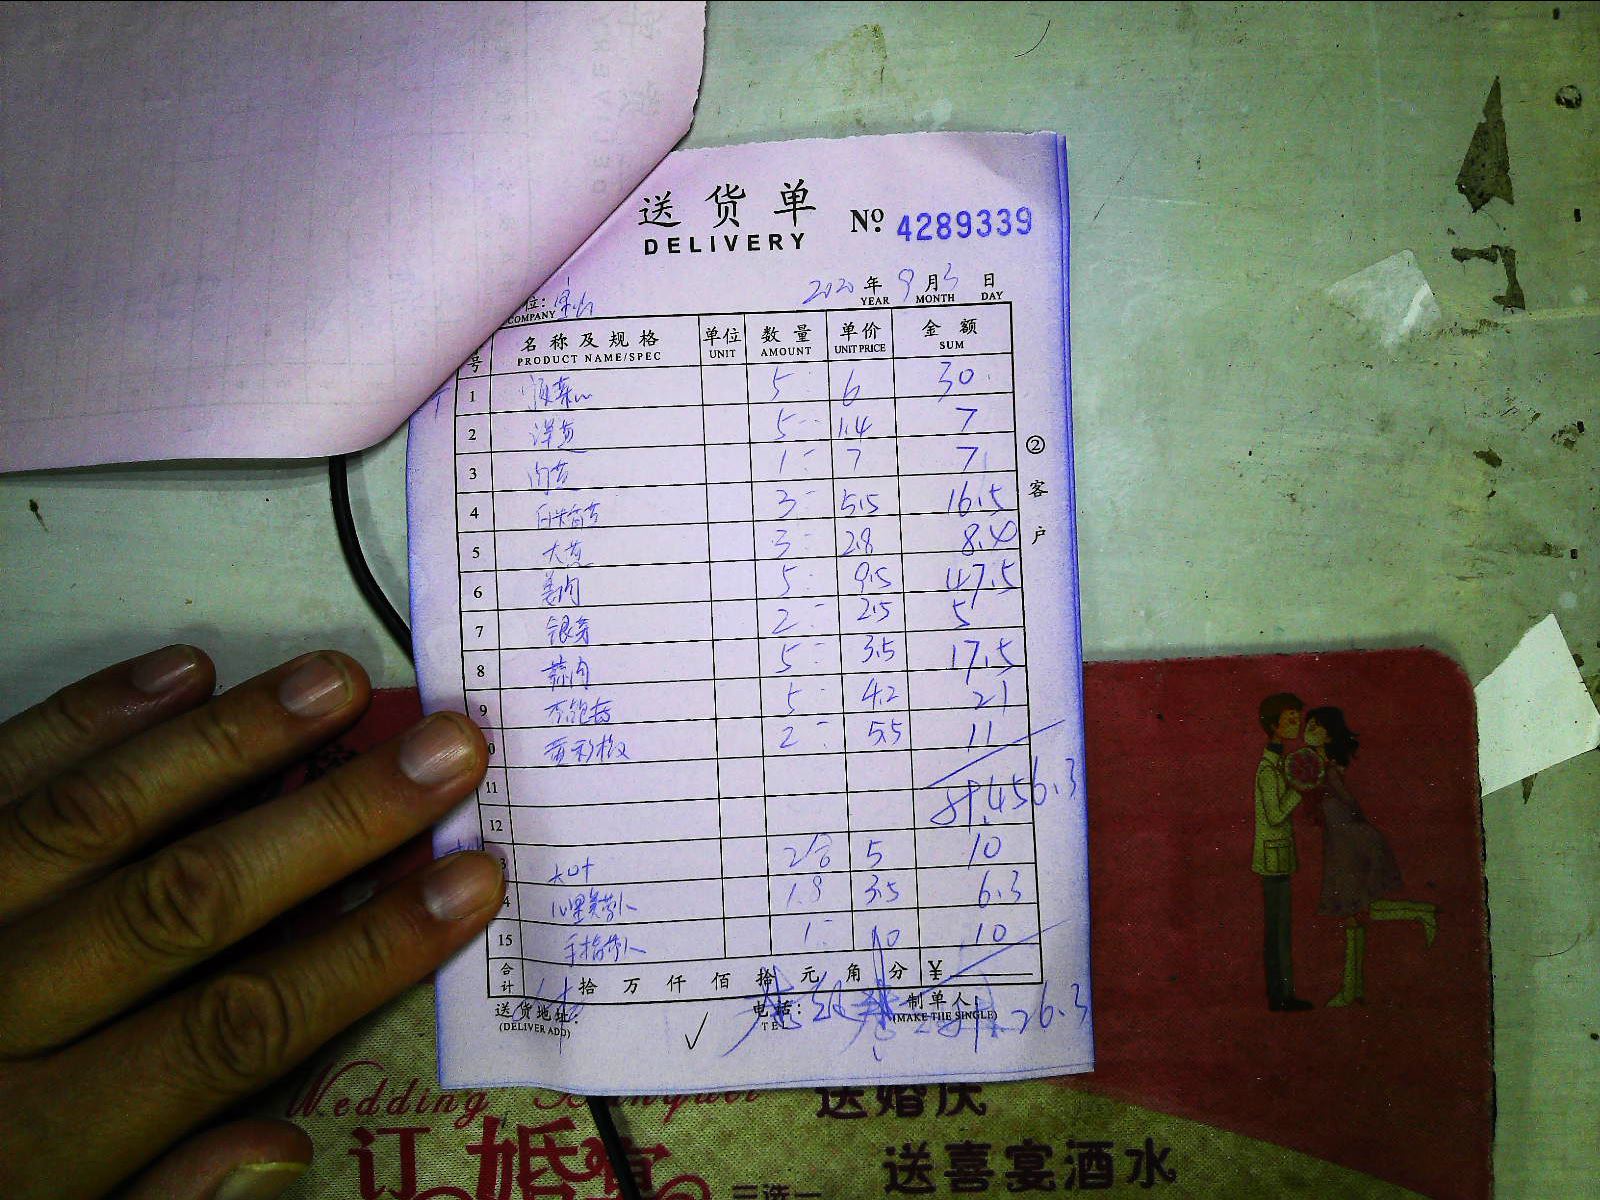 送货单
DELIVERY
No 4289339
位: 
COMPANY
2020 年 9 月 3 日
YEAR MONTH DAY
号 名称及规格 单位 数量 单价 金额
PRODUCT NAME/SPEC UNIT AMOUNT UNIT PRICE SUM
1 5 6 30
2 洋葱 5 1.4 7
3 1 7 7
4 3 5.5 16.5
5 大葱 3 2.8 8.40
6 姜肉 5 9.5 47.5
7 银芽 2 2.5 5
8 蒜肉 5 3.5 17.5
9 杏鲍菇 5 4.2 21
0 黄彩椒 2 5.5 11
11
12 计.456.3
3 大叶 2合 5 10
4 心里美萝卜 1.8 3.5 6.3
15 手指萝卜 1 10 10
合计 拾 万 仟 佰 拾 元 角 分 ¥
送货地址: 电话: 制单人
(DELIVER ADD) TEL (MAKE THE SINGLE)
计.26.3
②客户
Wedding Banquet 送婚庆
订婚宴 送喜宴酒水
三选一